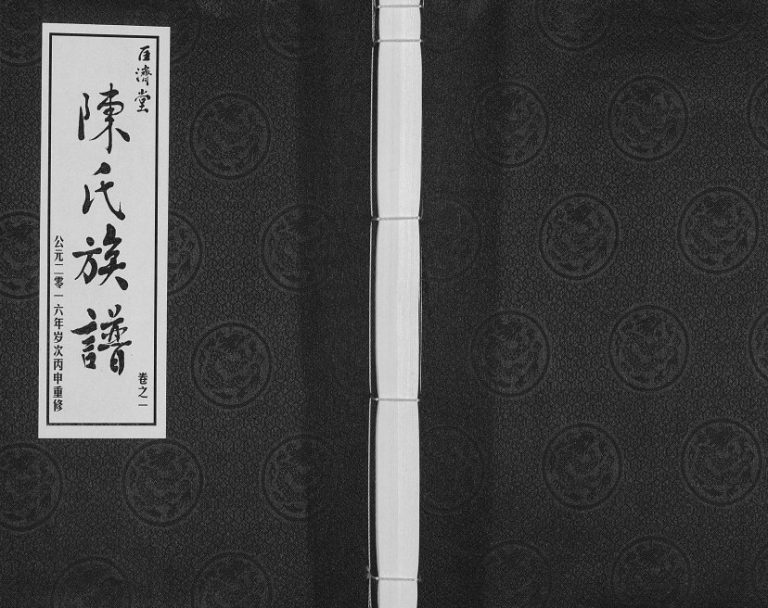 匡濟堂
陳氏族譜
卷之一
公元二零一六年岁次丙申重修